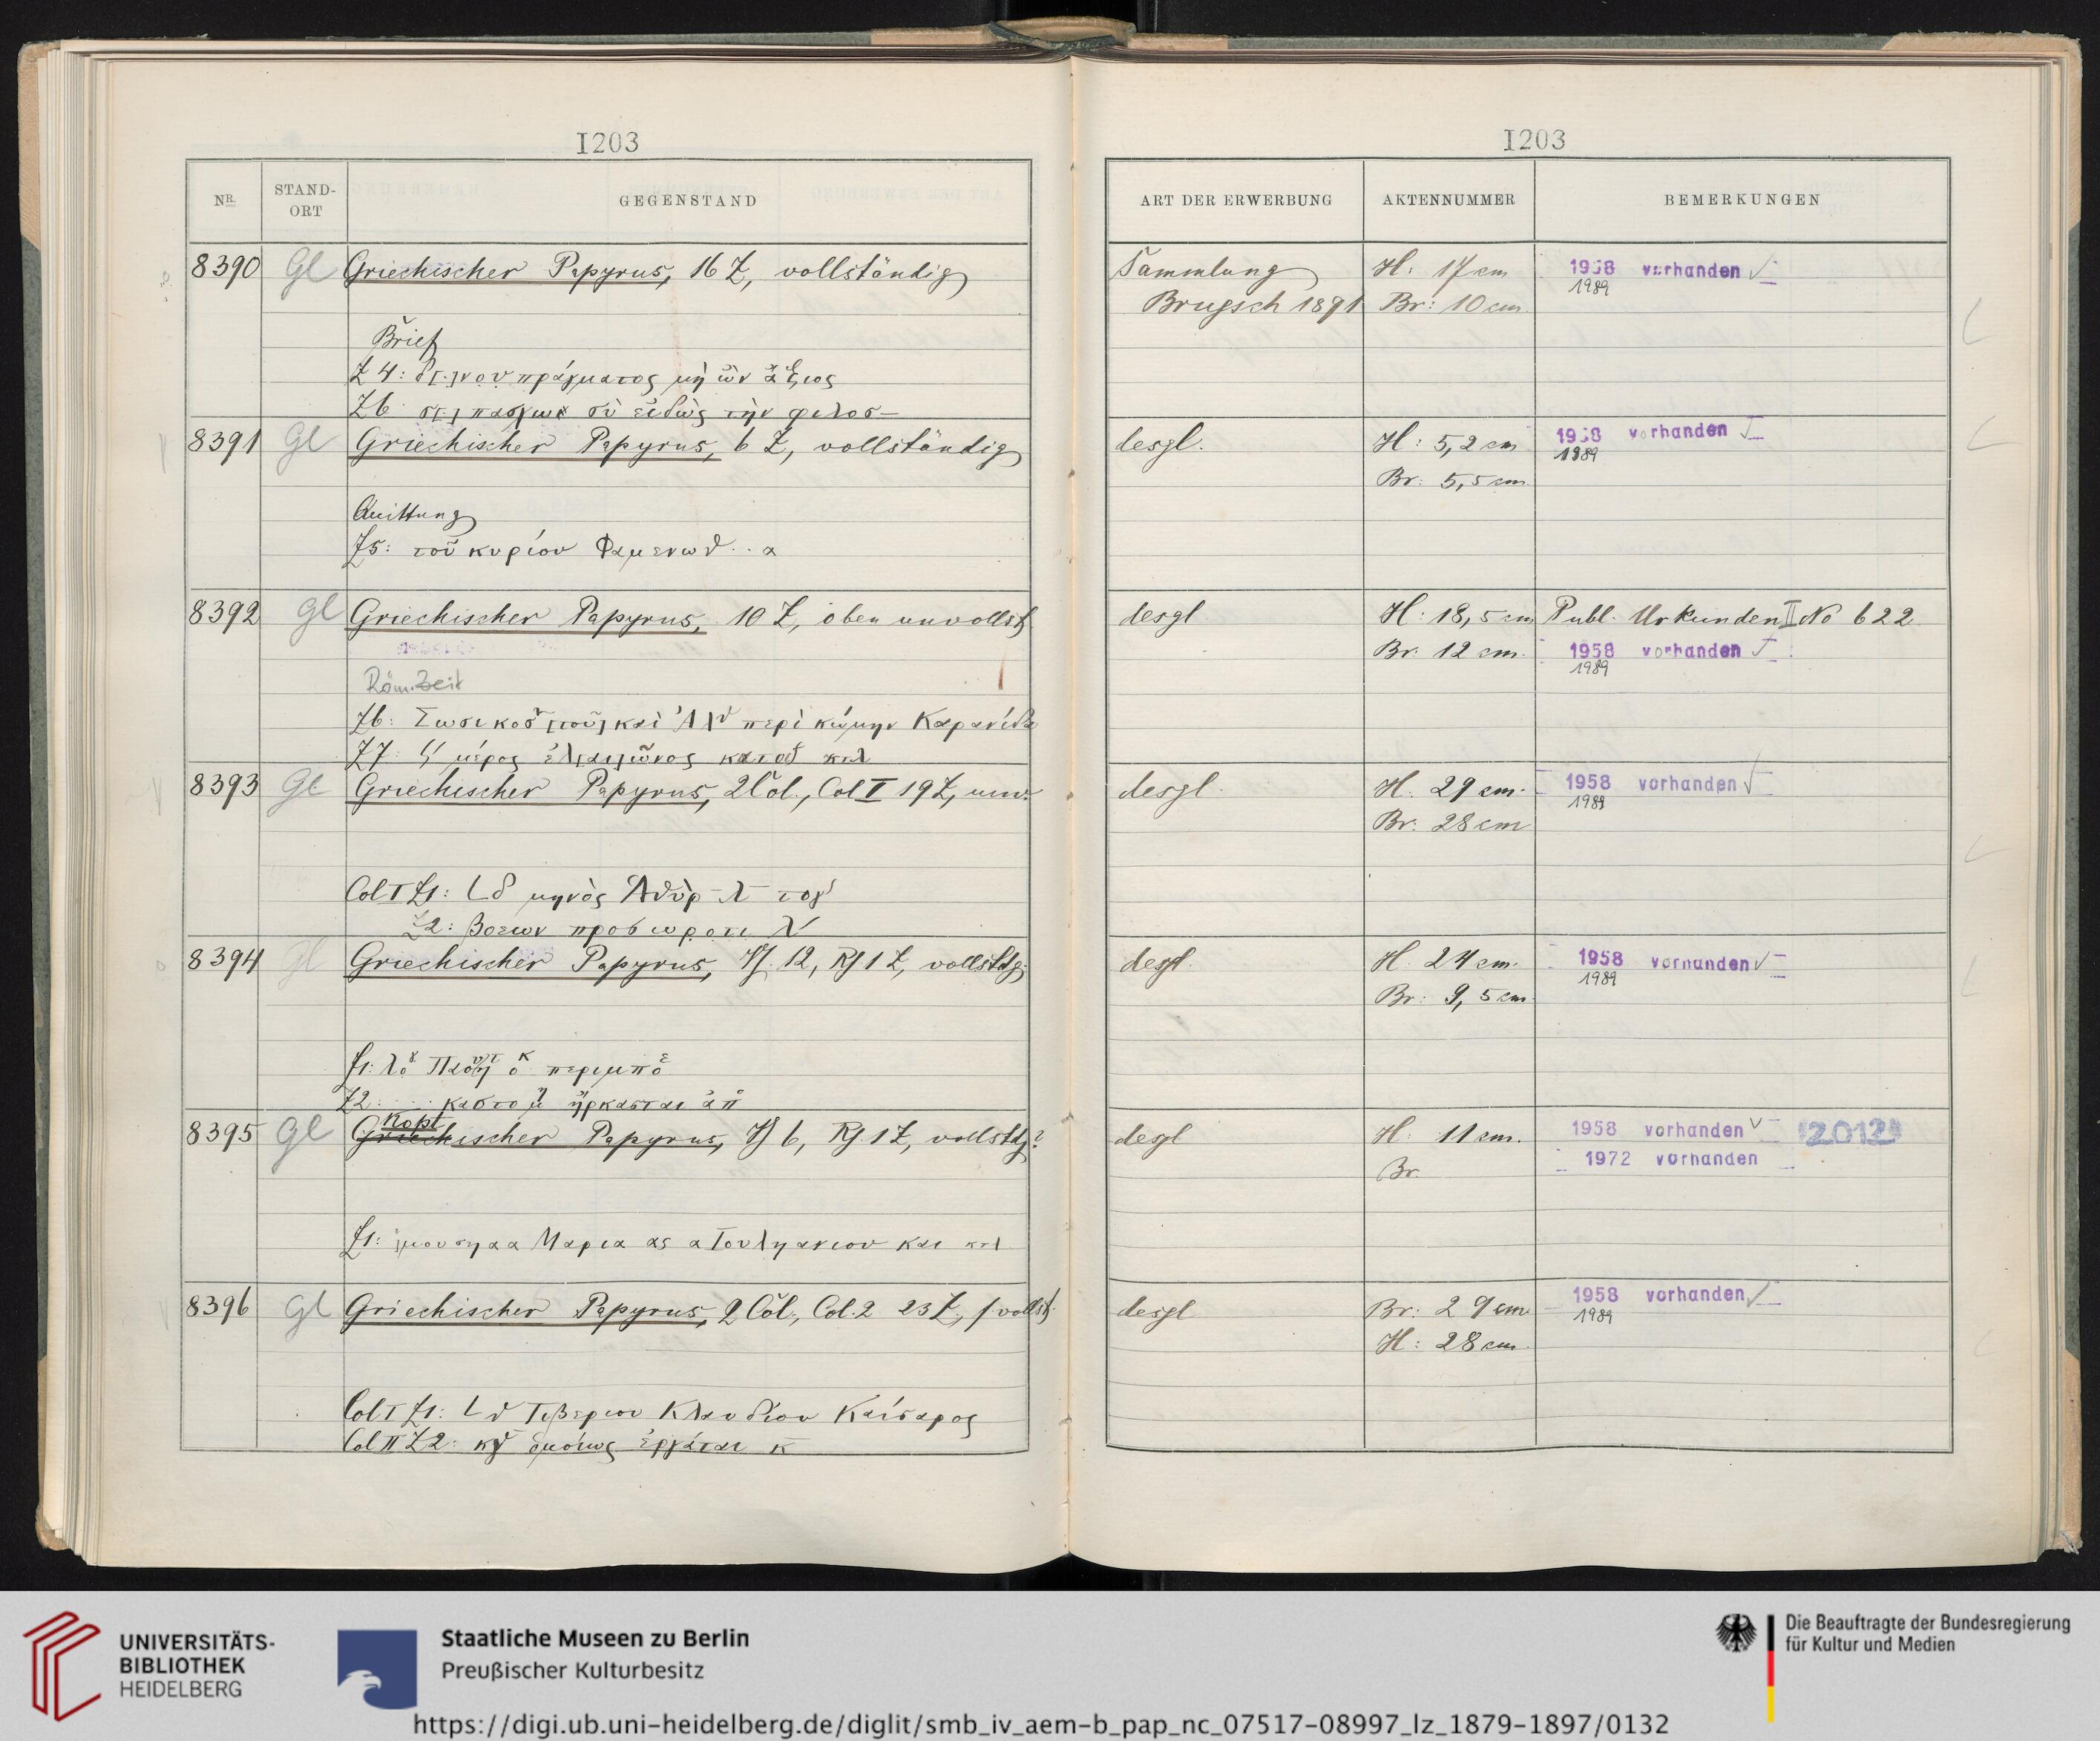 I203
NR.
STAND-
ORT
GEGENSTAND
8390 Gl Griechischer Papyrus, 16 Z, vollständig
Brief
Z 4: πράγματος μὴ ὢν ἄξιος
Z6 σὺ εἰδὼς τὴν φιλοσ–
8391 Gl Griechischer Papyrus, 6 Z, vollständig
Quittung
Z5: τοῦ κυρίου Φαμενωθ .. α
8392 Gl Griechischer Papyrus, 10 Z, oben unvollst
Röm. Zeit
Z6: [τοῦ] καὶ περὶ κώμην Καρανίδα
Z7: μέρος ἐλ[αι]ῶνος κτλ
8393 Gl Griechischer Papyrus, 2 Col., Col I 19 Z, unv.
Col I Z1: L δ μηνὸς Ἁθὺρ
Z2:
8394 Gl Griechischer Papyrus, Vf. 12, Rf 1 Z, vollstdg.
Z1:
Z2:
8395 Gl Kopt
Griechischer Papyrus, Vf 6, Rf. 1 Z, vollstdg?
Z1: Μαρια και κτλ
8396 Gl Griechischer Papyrus, 2 Col., Col. 2 23 Z, vollst.
Col I Z1: L θ Τιβεριου Κλαυδίου Καίσαρος
Col II Z2: ὁμοίως ἐργάται κ
I203
ART DER ERWERBUNG
AKTENNUMMER
BEMERKUNGEN
Sammlung H: 17 cm 1958 vorhanden
Brugsch 1891 Br: 10 cm. 1989
desgl. H: 5,2 cm 1958 vorhanden
1989
Br: 5,5 cm.
desgl H: 18,5 cm Publ. Urkunden II No 622
Br. 12 cm. 1958 vorhanden
1989
desgl. H. 29 cm. 1958 vorhanden
1989
Br: 28 cm
desgl. H. 24 cm. 1958 vorhanden
1989
Br: 9,5 cm.
desgl H: 11 cm. 1958 vorhanden
Br. 1972 vorhanden
desgl Br: 29 cm. 1958 vorhanden
1989
H: 28 cm.
UNIVERSITÄTS-
BIBLIOTHEK
HEIDELBERG
Staatliche Museen zu Berlin
Preußischer Kulturbesitz
Die Beauftragte der Bundesregierung
für Kultur und Medien
https://digi.ub.uni-heidelberg.de/diglit/smb_iv_aem-b_pap_nc_07517-08997_lz_1879-1897/0132